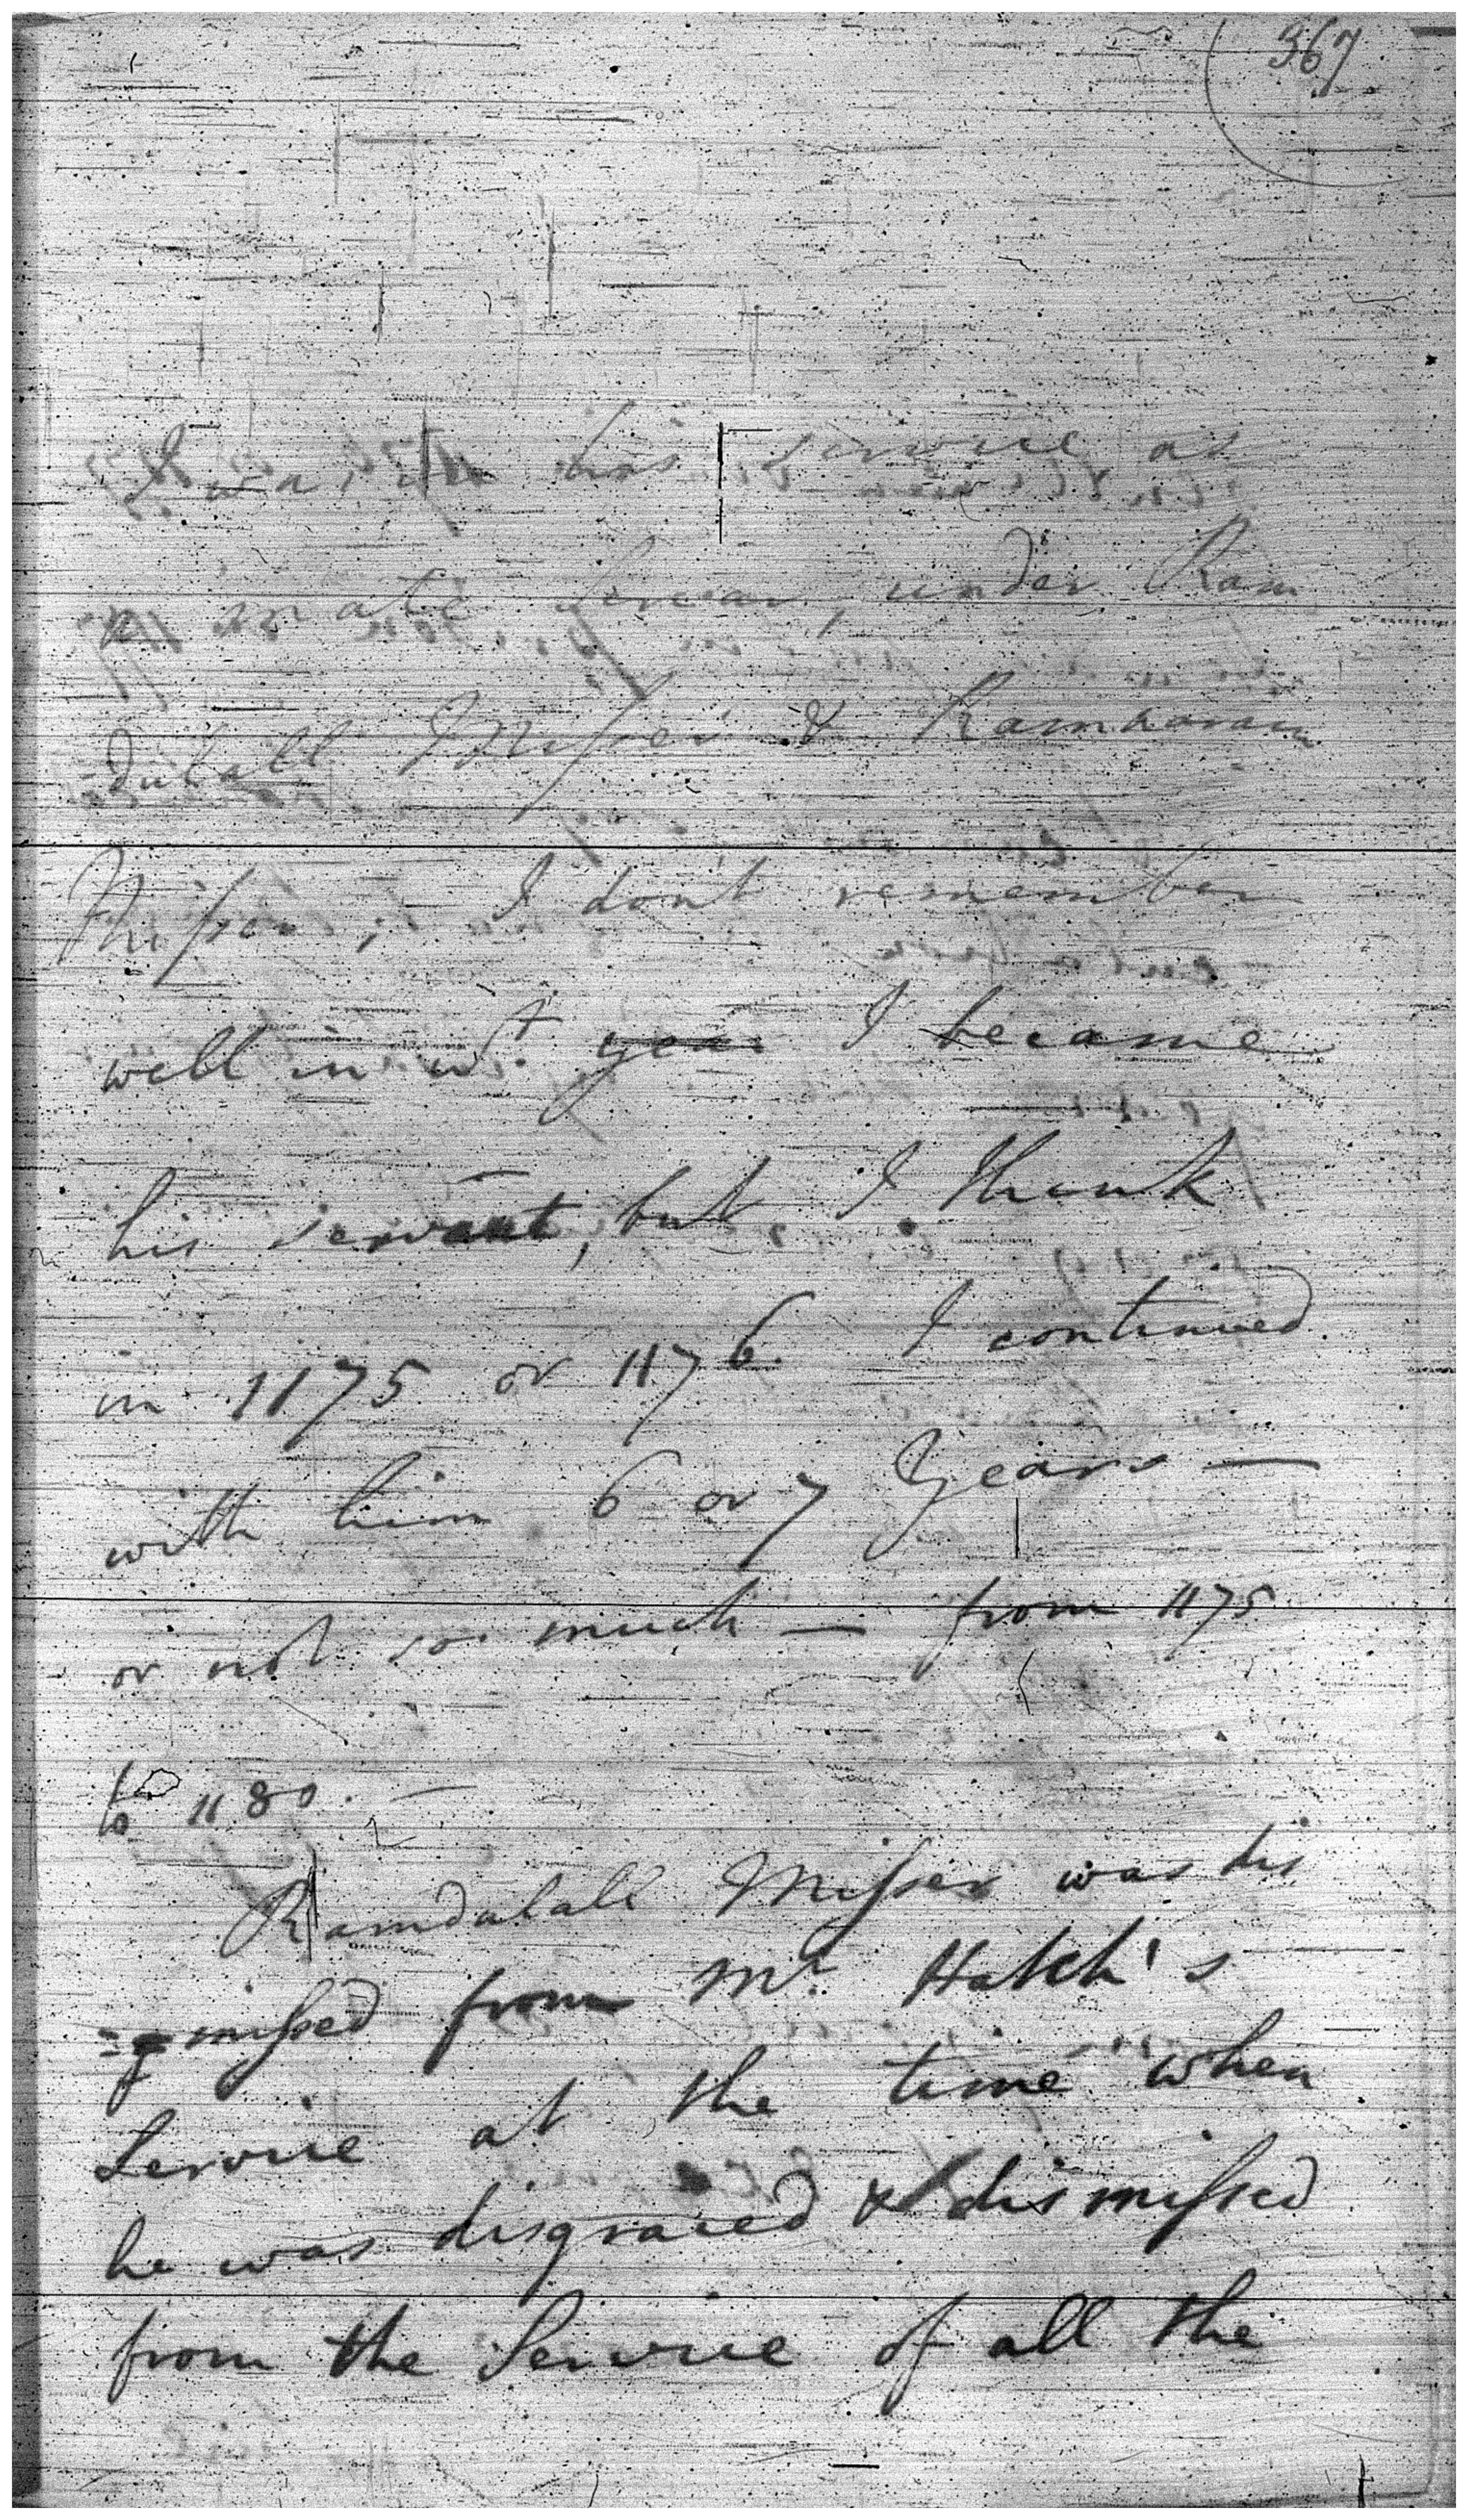 367
I was in his service as
a under Ram
dulall Misser & Ramnarain
Misser; I don't remember
well in wt. year I became
his servant, but I think
in 1175 or 1176. I continued
with him 6 or 7 Years —
or not so much — from 1175
to 1180. —
Ramdulall Misser was dis
=missed from Mr. Hatch's
Service at the time when
he was disgraced & dismissed
from the Service of all the